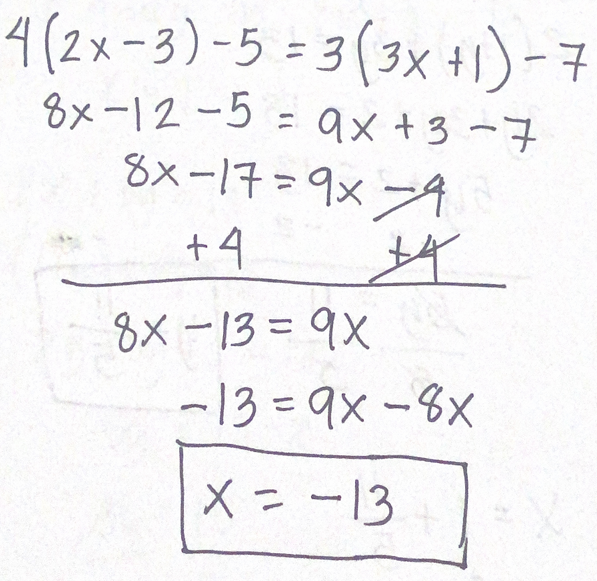 4(2x-3)-5=3(3x+1)-7
8x-12-5=9x+3-7
8x-17=9x-4
+4 +4
8x-13=9x
-13=9x-8x
x=-13